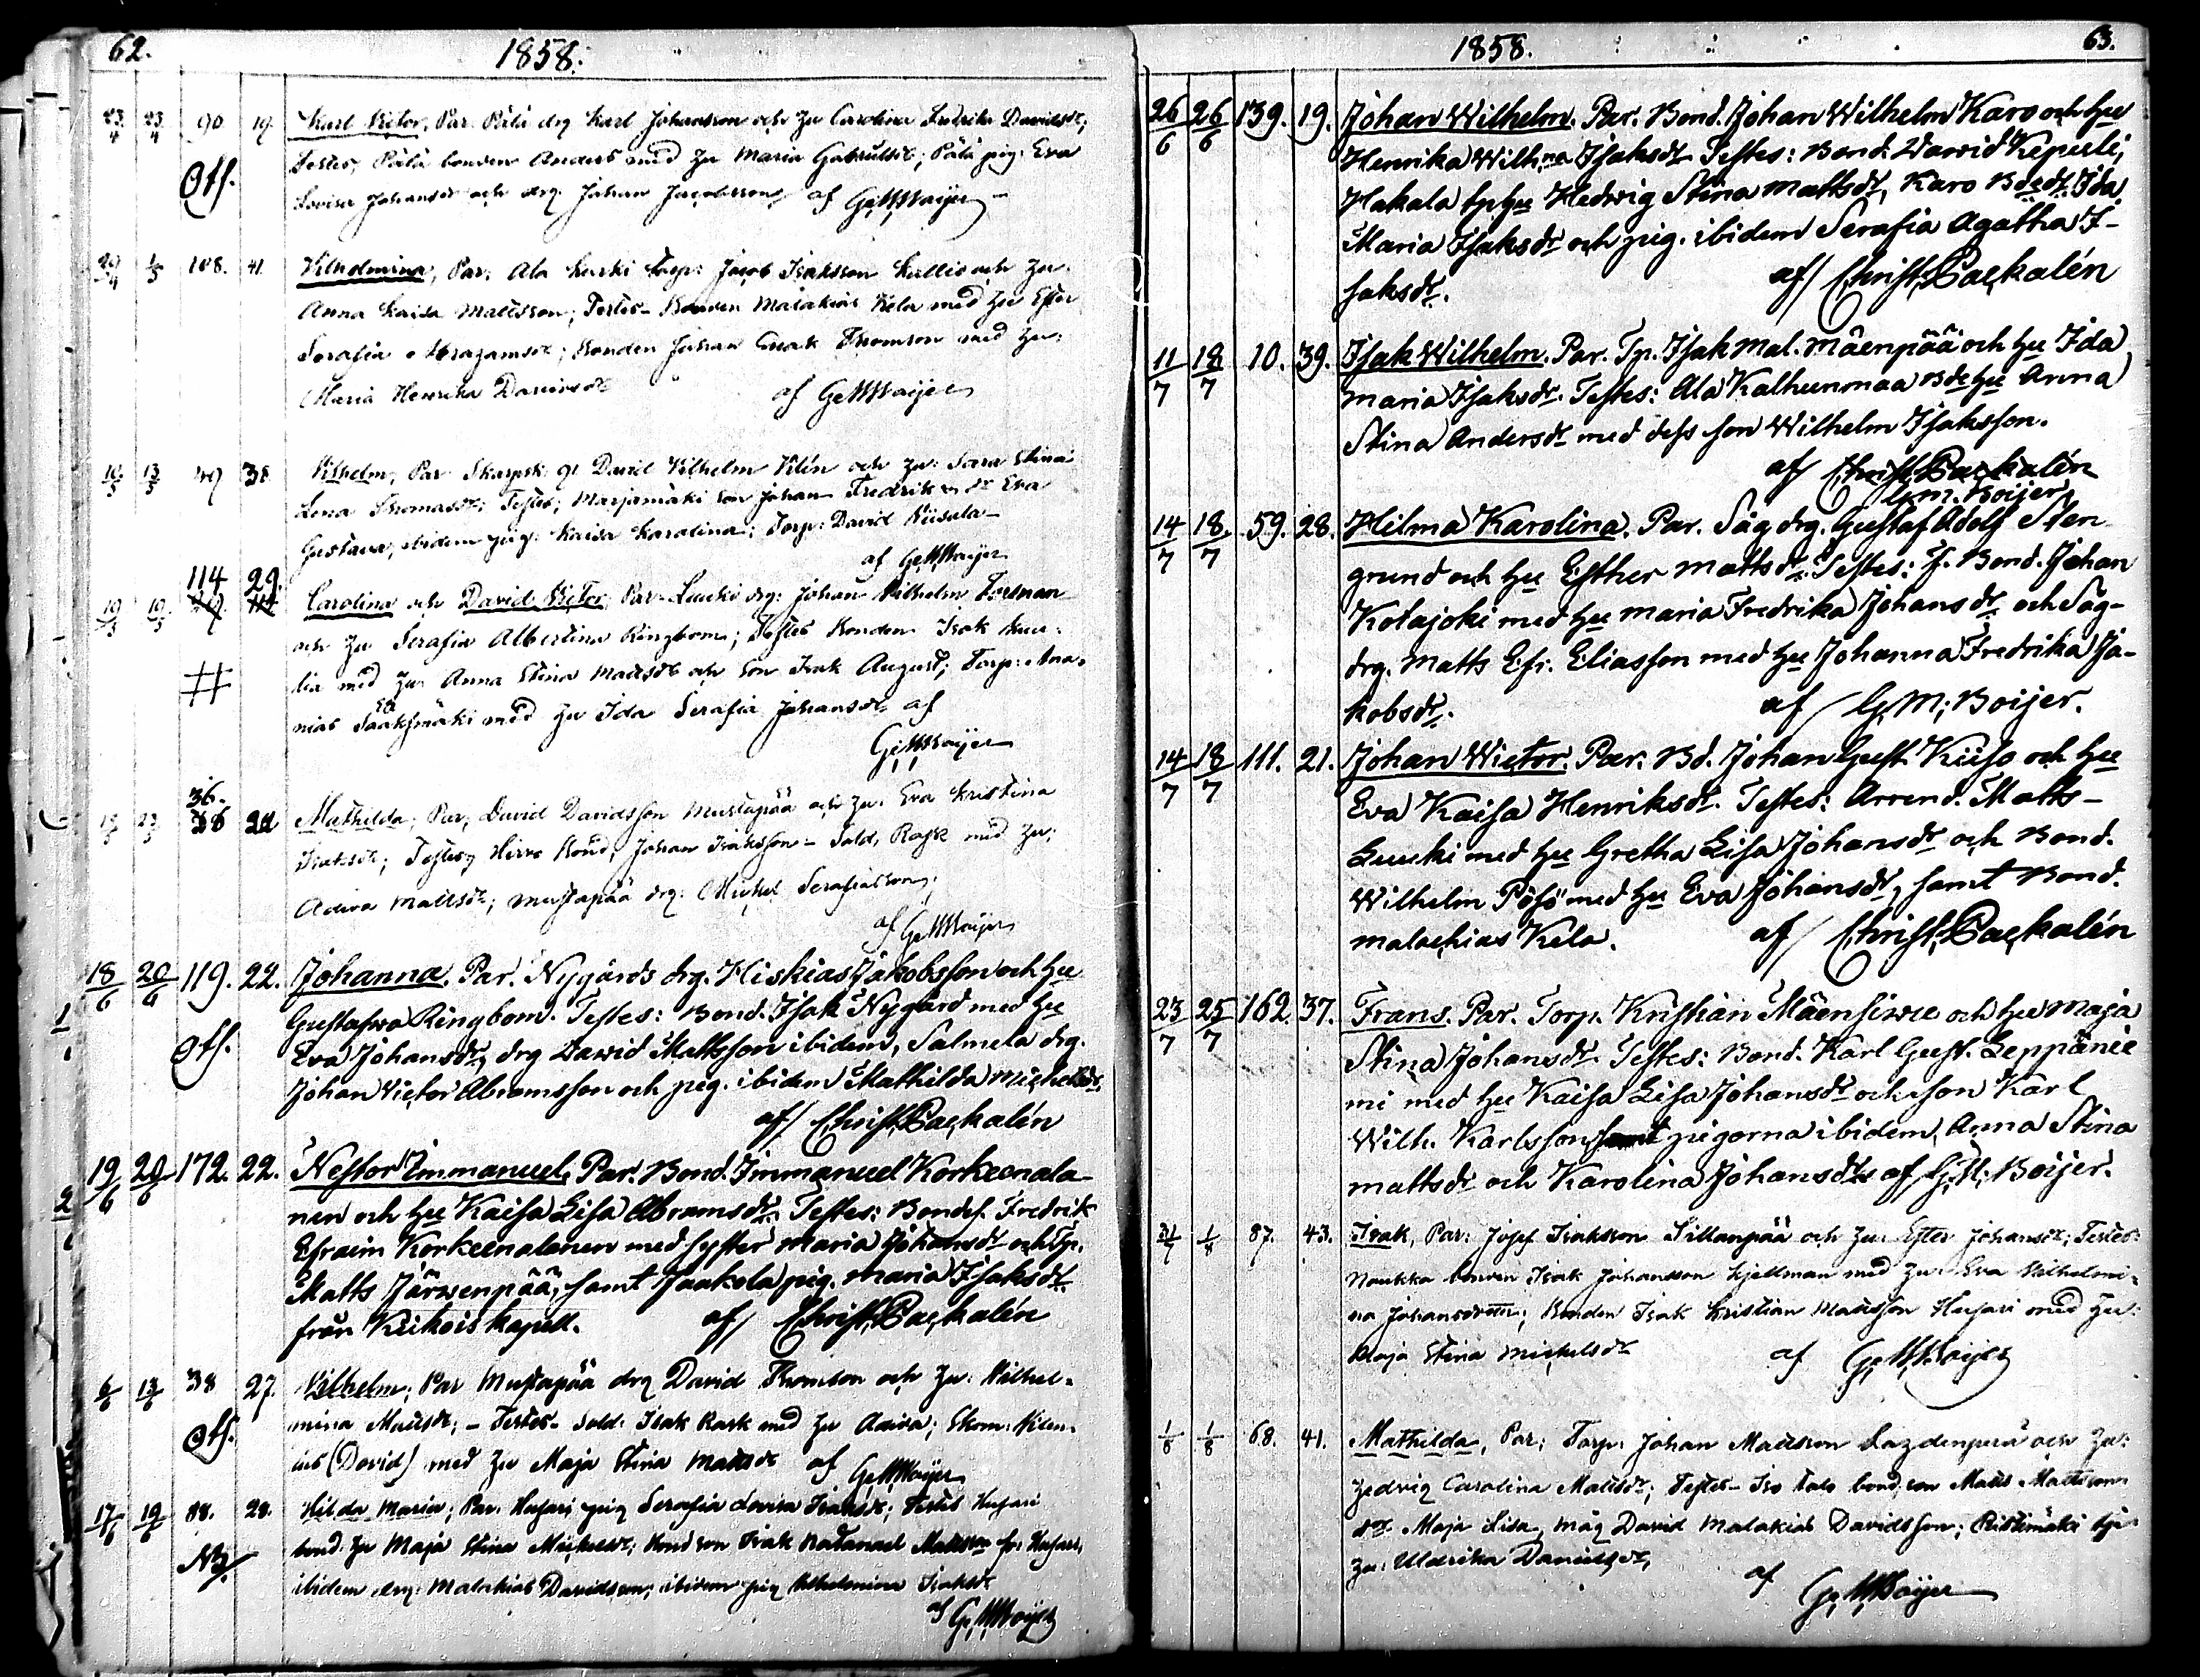 62.
1858.
23/4 23/4 90. 19. Karl Victor, Par. Pälä drg Karl Johansson och hu Carolina Fredrika Davidsdr;
Testes, Pälä bonden Anders med hu Maria Gabrielsdr; Pälä pig: Eva
Ots. Lovisa Johansdr och drg. Johan Jacobsson, af G. M. Boijer
29/4 1/5 108. 41. Vilhelmina, Par: Ala Kurki torp: Jacob Isaksson Kallio och hu:
Anna Kaisa Mattsson; Testes- Bonden Malakias Kela med hu Ester
Serafia Abrahamsdr; Bonden Johan Isak Thomson med hu:
Maria Henrika Davidsdr af G. M. Boijer
10/5 13/5 49 38 Vilhelm, Par Skarpsk: g: David Vilhelm Vilén och hu: Sara Stina
Lena Thomasdr; Testes; Marjamäki son Johan Fredrik Eva
Gustava, ibidem pig: Kaisa Karolina; Torp: David
af G. M. Boijer
114 29.
19/5 19/5 Carolina och David Victor, Par Luuki drg: Johan Vilhelm Forsman
och hu Serafia Albertina Ringbom; Testes Bonden Isak
lia med hu Anna Stina Mattsdr och Son Isak August; Torp: Ana-
# nias Sääksmäki med hu Ida Serafia Johansdr af
G. M. Boijer
36.
Mathilda; Par; David Davidsson Mustapää och hu: Eva Kristina
Isaksdr; Testes; Hirvo Bond; Johan Isaksson- Sold, Rask med hu;
Adiva Mattsdr; Mustapää drg: Michel
af G. M. Boijer
18/6 20/6 119. 22. Johanna. Par. Nygårds drg. Hiskias Jakobsson och hu
Gustafwa Ringbom. Testes: Bond. Isak Nygård med hu
Ots. Eva Johansdr, drg Dawid Mattsson ibidem, Salmela drg.
Johan Victor Abramsson och pig. ibidem Mathilda Michelsdr.
af Christ. Paekalén
19/6 20/6 172. 22. Nestor Emmanuel, Par. Bond. Immanuel Korkeenala-
nen och hu Kaisa Lisa Abramsdr. Testes: Bondes. Fredrik
Efraim Korkeenalanen med syster Maria Johansdr och Tp.
Matts Järwenpää, samt Jaakola pig. Maria Isaksdr
från Kiikois kapell. af Christ. Paekalén
6/6 13/6 38 27. Vilhelm; Par Mustapää drg David Thomson och hu: Vilhel-
mina Mattsdr; - Testes- Sold: Isak Rask med hu Adiva;
Ots. (David) med hu Maja Stina Mattsdr af G. M. Boijer
17/6 19/6 88. 28. Hilda Maria; Par. Husari pig Serafia Lovisa Isaksdr; Testes Husari
bond. hu Maja Stina Michelsdr; Bond son Isak Natanael Mattsson
ibidem drg: Malakias Davidsson; ibidem pig Vilhelmina Isaksdr
af G. M. Boijer
1858.
63.
26/6 26/6 139. 19. Johan Wilhelm. Par. Bond. Johan Wilhelm Karo och hu
Henrika Wilh:na Isaksdr Testes: Bond. Dawid Kepuli;
Hakala tp hu Hedwig Stina Mattsdr, Karo Bdedr. Ida
Maria Isaksdr och pig. ibidem Serafia Agatha I-
saksdr. af Christ. Paekalén
11/7 18/7 10. 39. Isak Wilhelm. Par. Tp. Isak Mal. Mäenpää och hu Ida
Maria Isaksdr. Testes: Ala Kalhunmaa Bde hu Anna
Stina Andersdr med dess son Wilhelm Isaksson.
af Christ. Paekalén
G. M. Boijer
14/7 18/7 59. 28. Hilma Karolina. Par. Såg drg. Gustaf Adolf Sten-
grund och hu Esther Mattsdr. Testes: f. Bond. Johan
Kotajoki med hu Maria Fredrika Johansdr och Såg-
drg. Matts Efr. Eliasson med hu Johanna Fredrika Ja-
kobsdr. af G. M. Boijer.
14/7 18/7 111. 21. Johan Wictor. Par. Bd. Johan Gust. Kiiso och hu
Eva Kaisa Henriksdr. Testes: Arrend. Matts-
Luuki med hu Gretha Lisa Johansdr och Bond.
Wilhelm Pösö med hu Eva Johansdr, samt Bond.
Malachias Kela. af Christ. Paekalén
23/7 25/7 162. 37. Frans. Par. Torp. Kristian Mäensiwu och hu Maja
Stina Johansdr. Testes: Bond. Karl Gust. Leppänie
mi med hu Kaisa Lisa Johansdr och son Karl
Wilh. Karlsson samt pigorna ibidem Anna Stina
Mattsdr och Karolina Johansdr af G. M. Boijer.
31/7 1/8 87. 43. Isak, Par: Josef Isaksson Sillanpää och hu Ester Johansdr; Testes:
Noukka bonden Isak Johansson Kjellman med hu Eva Vilhelmi-
na Johansdotter; Bonden Isak Kristian Mattsson Husari med hu:
Maja Stina Michelsdr af G. M. Boijer
1/8 1/8 68. 41. Mathilda, Par; Torp: Johan Mattsson och hu:
Hedvig Carolina Mattsdr; Testes- Iso talo bond. son Matts Mattsson
Maja Lisa, måg David Malakias Davidsson; Ristimäki
hu: Uldrika Danielsdr,
af G. M. Boijer